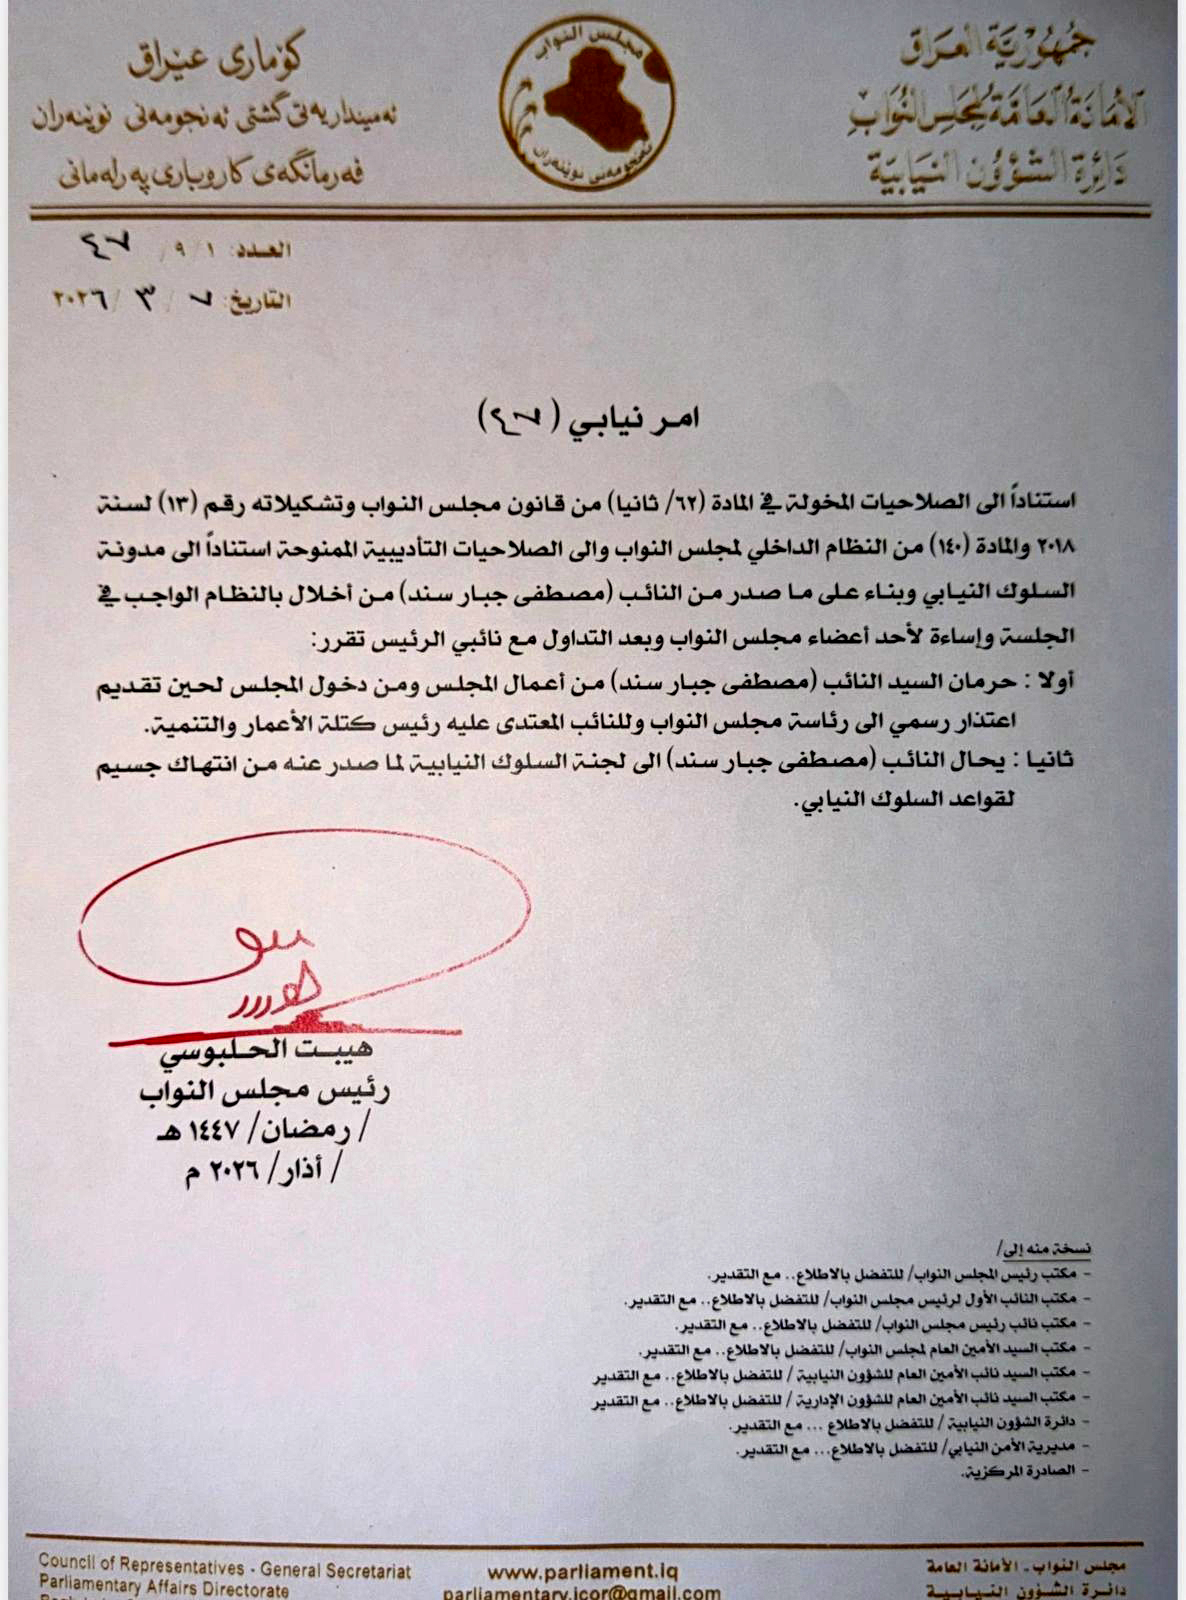 جمهورية العراق
الأمانة العامة لمجلس النواب
دائرة الشؤون النيابية
مجلس النواب
ئەنجومەنی نوێنەران
كۆماری عێراق
ئەمینداریەتی گشتی ئەنجومەنی نوێنەران
فەرمانگەی کاروباری پەرلەمانی
العدد: ١ /٩ / ٤٧
التاريخ: ٧ / ٣ / ٢٠٢٦
امر نيابي (٤٧)
استناداً الى الصلاحيات المخولة في المادة (٦٢/ ثانيا) من قانون مجلس النواب وتشكيلاته رقم (١٣) لسنة
٢٠١٨ والمادة (١٤٠) من النظام الداخلي لمجلس النواب والى الصلاحيات التأديبية الممنوحة استناداً الى مدونة
السلوك النيابي وبناء على ما صدر من النائب (مصطفى جبار سند) من أخلال بالنظام الواجب في
الجلسة وإساءة لأحد أعضاء مجلس النواب وبعد التداول مع نائبي الرئيس تقرر:
أولا : حرمان السيد النائب (مصطفى جبار سند) من أعمال المجلس ومن دخول المجلس لحين تقديم
اعتذار رسمي الى رئاسة مجلس النواب وللنائب المعتدى عليه رئيس كتلة الأعمار والتنمية.
ثانيا : يحال النائب (مصطفى جبار سند) الى لجنة السلوك النيابية لما صدر عنه من انتهاك جسيم
لقواعد السلوك النيابي.
هيبت الحلبوسي
رئيس مجلس النواب
/ رمضان/ ١٤٤٧ هـ
/ أذار/ ٢٠٢٦ م
نسخة منه إلى/
- مكتب رئيس المجلس النواب/ للتفضل بالاطلاع.. مع التقدير.
- مكتب النائب الأول لرئيس مجلس النواب/ للتفضل بالاطلاع.. مع التقدير.
- مكتب نائب رئيس مجلس النواب/ للتفضل بالاطلاع.. مع التقدير.
- مكتب السيد الأمين العام لمجلس النواب/ للتفضل بالاطلاع.. مع التقدير.
- مكتب السيد نائب الأمين العام للشؤون النيابية / للتفضل بالاطلاع.. مع التقدير
- مكتب السيد نائب الأمين العام للشؤون الإدارية / للتفضل بالاطلاع.. مع التقدير
- دائرة الشؤون النيابية / للتفضل بالاطلاع ... مع التقدير.
- مديرية الأمن النيابي/ للتفضل بالاطلاع... مع التقدير.
- الصادرة المركزية.
مجلس النواب - الأمانة العامة
دائرة الشؤون النيابية
www.parliament.iq
parliamentary.icor@gmail.com
Council of Representatives - General Secretariat
Parliamentary Affairs Directorate